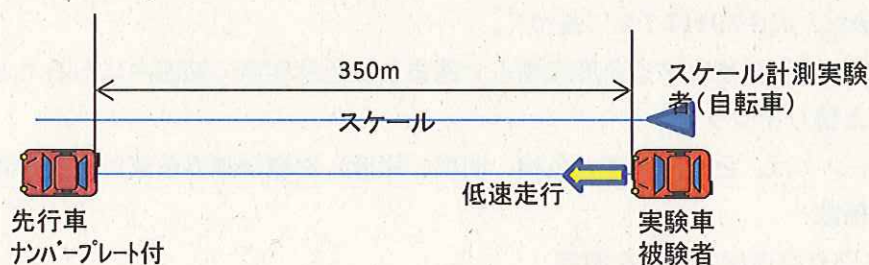 350m
スケール計測実験
者(自転車)
スケール
低速走行
先行車
ナンバープレート付
実験車
被験者